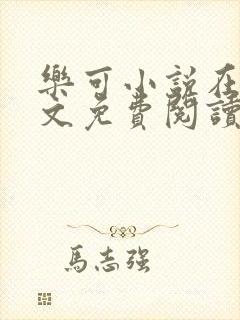 樂可小說在
文免費閱讀
馬志強